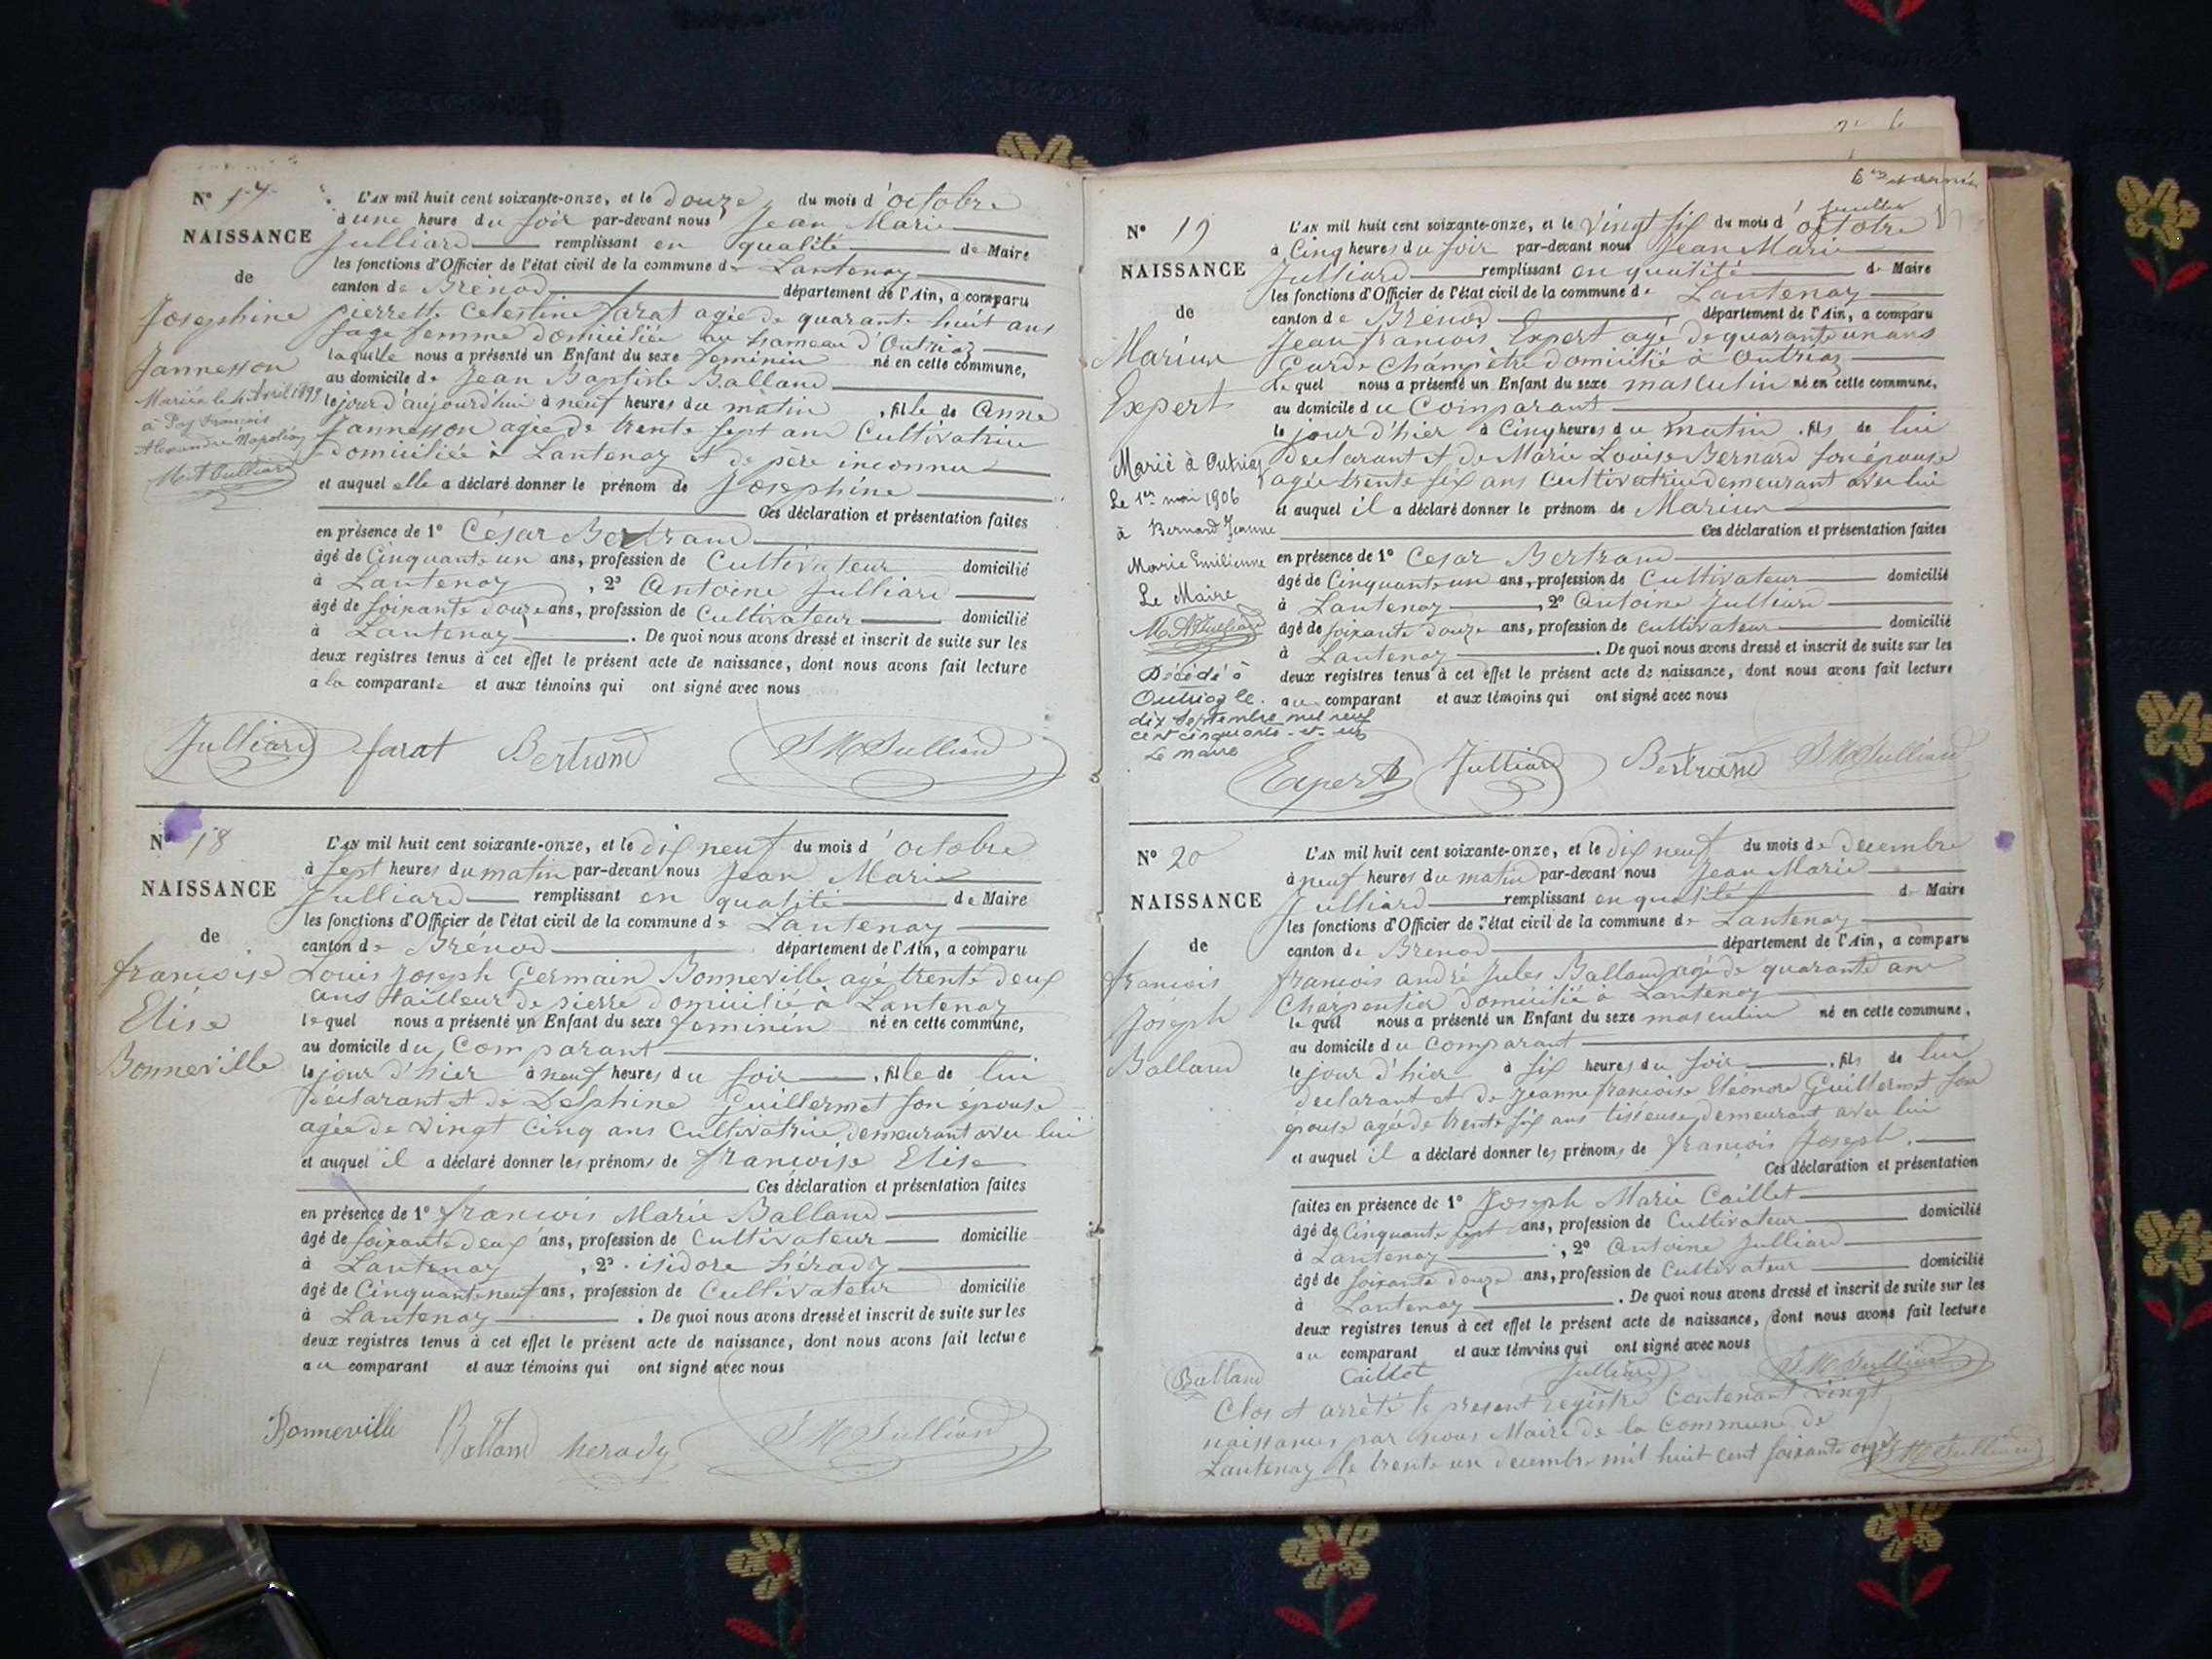 N° 17
NAISSANCE
de
Josephine
Jannesson
Mariée le 4 Avril 1899
à Puy François
Alexandre Napoléon
L'AN mil huit cent soixante-onze, et le douze du mois d'octobre
à une heure du soir par-devant nous Jean Marie
Julliard remplissant en qualité de Maire
les fonctions d'Officier de l'état civil de la commune de Lantenay
canton de Brenod département de l'Ain, a comparu
pierrette Celestine farat agée de quarante huit ans
sage femme domiciliée au hameau d'Outriaz
laquelle nous a présenté un Enfant du sexe feminin né en cette commune,
au domicile de Jean Baptiste Balland
le jour d'aujourd'hui à neuf heures du matin, fille de Anne
Jannesson agée de trente sept ans Cultivatrice
domiciliée à Lantenay et de père inconnu
et auquel elle a déclaré donner le prénom de Josephine
Ces déclaration et présentation faites
en présence de 1° César Bertrand
âgé de Cinquante un ans, profession de Cultivateur domicilié
à Lantenay, 2° Antoine Julliard
âgé de soixante douze ans, profession de Cultivateur domicilié
à Lantenay. De quoi nous avons dressé et inscrit de suite sur les
deux registres tenus à cet effet le présent acte de naissance, dont nous avons fait lecture
a la comparante et aux témoins qui ont signé avec nous
Julliard farat Bertrand J M Julliard
N° 18
NAISSANCE
de
francoise
Elise
Bonneville
L'AN mil huit cent soixante-onze, et le dix neuf du mois d'octobre
à sept heures du matin par-devant nous Jean Marie
Julliard remplissant en qualité de Maire
les fonctions d'Officier de l'état civil de la commune de Lantenay
canton de Brénod département de l'Ain, a comparu
Louis Joseph Germain Bonneville agé trente deux
ans tailleur de pierre domicilié à Lantenay
lequel nous a présenté un Enfant du sexe feminin né en cette commune,
au domicile du Comparant
le jour d'hier à neuf heures du soir, fille de lui
déclarant et de Delphine Guillermet son épouse
agée de vingt cinq ans Cultivatrice, demeurant avec lui
et auquel il a déclaré donner les prénoms de francoise Elise
Ces déclaration et présentation faites
en présence de 1° francois Marie Balland
âgé de soixante deux ans, profession de Cultivateur domicilie
à Lantenay, 2° isidore hérady
âgé de Cinquante neuf ans, profession de Cultivateur domicilie
à Lantenay. De quoi nous avons dressé et inscrit de suite sur les
deux registres tenus à cet effet le présent acte de naissance, dont nous avons fait lecture
au comparant et aux témoins qui ont signé avec nous
Bonneville Balland herady J M Julliard
6me et dernier
feuillet
N° 19
NAISSANCE
de
Marius
Expert
Marié à Outriaz
Le 1er mai 1906
à Bernard Jeanne
Marie Emilienne
Le Maire
Décédé à
Outriaz le
dix septembre mil neuf
cent cinquante-et-un
Le maire
L'AN mil huit cent soixante-onze, et le vingt six du mois d'octobre
à Cinq heures du soir par-devant nous Jean Marie
Julliard remplissant en qualité de Maire
les fonctions d'Officier de l'état civil de la commune de Lantenay
canton de Brenod département de l'Ain, a comparu
Jean francois Expert agé de quarante un ans
Garde Champêtre domicilié à Outriaz
lequel nous a présenté un Enfant du sexe masculin né en cette commune,
au domicile du Comparant
le jour d'hier à Cinq heures du matin, fils de lui
declarant et de Marie Louise Bernard son épouse
agée trente six ans Cultivatrice demeurant avec lui
et auquel il a déclaré donner le prénom de Marius
Ces déclaration et présentation faites
en présence de 1° Cesar Bertrand
âgé de Cinquante un ans, profession de Cultivateur domicilié
à Lantenay, 2° Antoine Julliard
âgé de soixante douze ans, profession de cultivateur domicilié
à Lantenay. De quoi nous avons dressé et inscrit de suite sur les
deux registres tenus à cet effet le présent acte de naissance, dont nous avons fait lecture
au comparant et aux témoins qui ont signé avec nous
Expert Julliard Bertrand J M Julliard
N° 20
NAISSANCE
de
francois
Joseph
Balland
L'AN mil huit cent soixante-onze, et le dix neuf du mois de decembre
à neuf heures du matin par-devant nous Jean Marie
Julliard remplissant en qualité de Maire
les fonctions d'Officier de l'état civil de la commune de Lantenay
canton de Brenod département de l'Ain, a comparu
francois andré Jules Balland agé de quarante ans
Charpentier domicilié à Lantenay
lequel nous a présenté un Enfant du sexe masculin né en cette commune,
au domicile du Comparant
le jour d'hier à six heures du soir, fils de lui
declarant et de Jeanne francoise Eléonore Guillermet son
épouse agée de trente six ans tisseuse, demeurant avec lui
et auquel il a déclaré donner les prénoms de françois Joseph.
Ces déclaration et présentation
faites en présence de 1° Joseph Marie Caillet
âgé de Cinquante sept ans, profession de Cultivateur domicilié
à Lantenay, 2° Antoine Julliard
âgé de soixante douze ans, profession de Cultivateur domicilié
à Lantenay. De quoi nous avons dressé et inscrit de suite sur les
deux registres tenus à cet effet le présent acte de naissance, dont nous avons fait lecture
au comparant et aux témoins qui ont signé avec nous
Balland Caillet Julliard J M Julliard
Clos et arrêté le present registre Contenant vingt
naissances par nous Maire de la Commune de
Lantenay le trente un decembre mil huit cent soixante onze J M Julliard